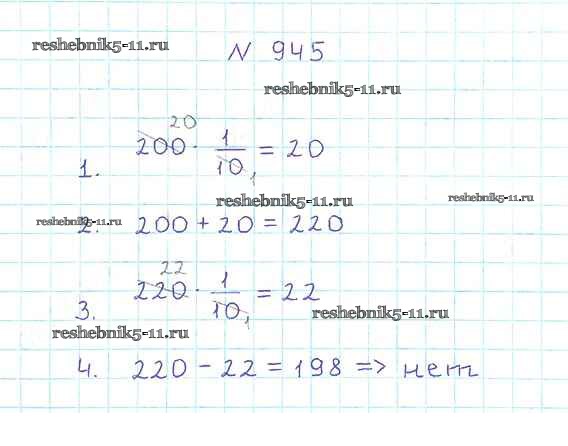 reshebnik5-11.ru
N 945
reshebnik5-11.ru
20
1. 200 · 1/10 1 = 20
reshebnik5-11.ru
reshebnik5-11.ru
reshebnik5-11.ru
2. 200 + 20 = 220
22
3. 220 · 1/10 1 = 22
reshebnik5-11.ru
reshebnik5-11.ru
4. 220 - 22 = 198 => нет